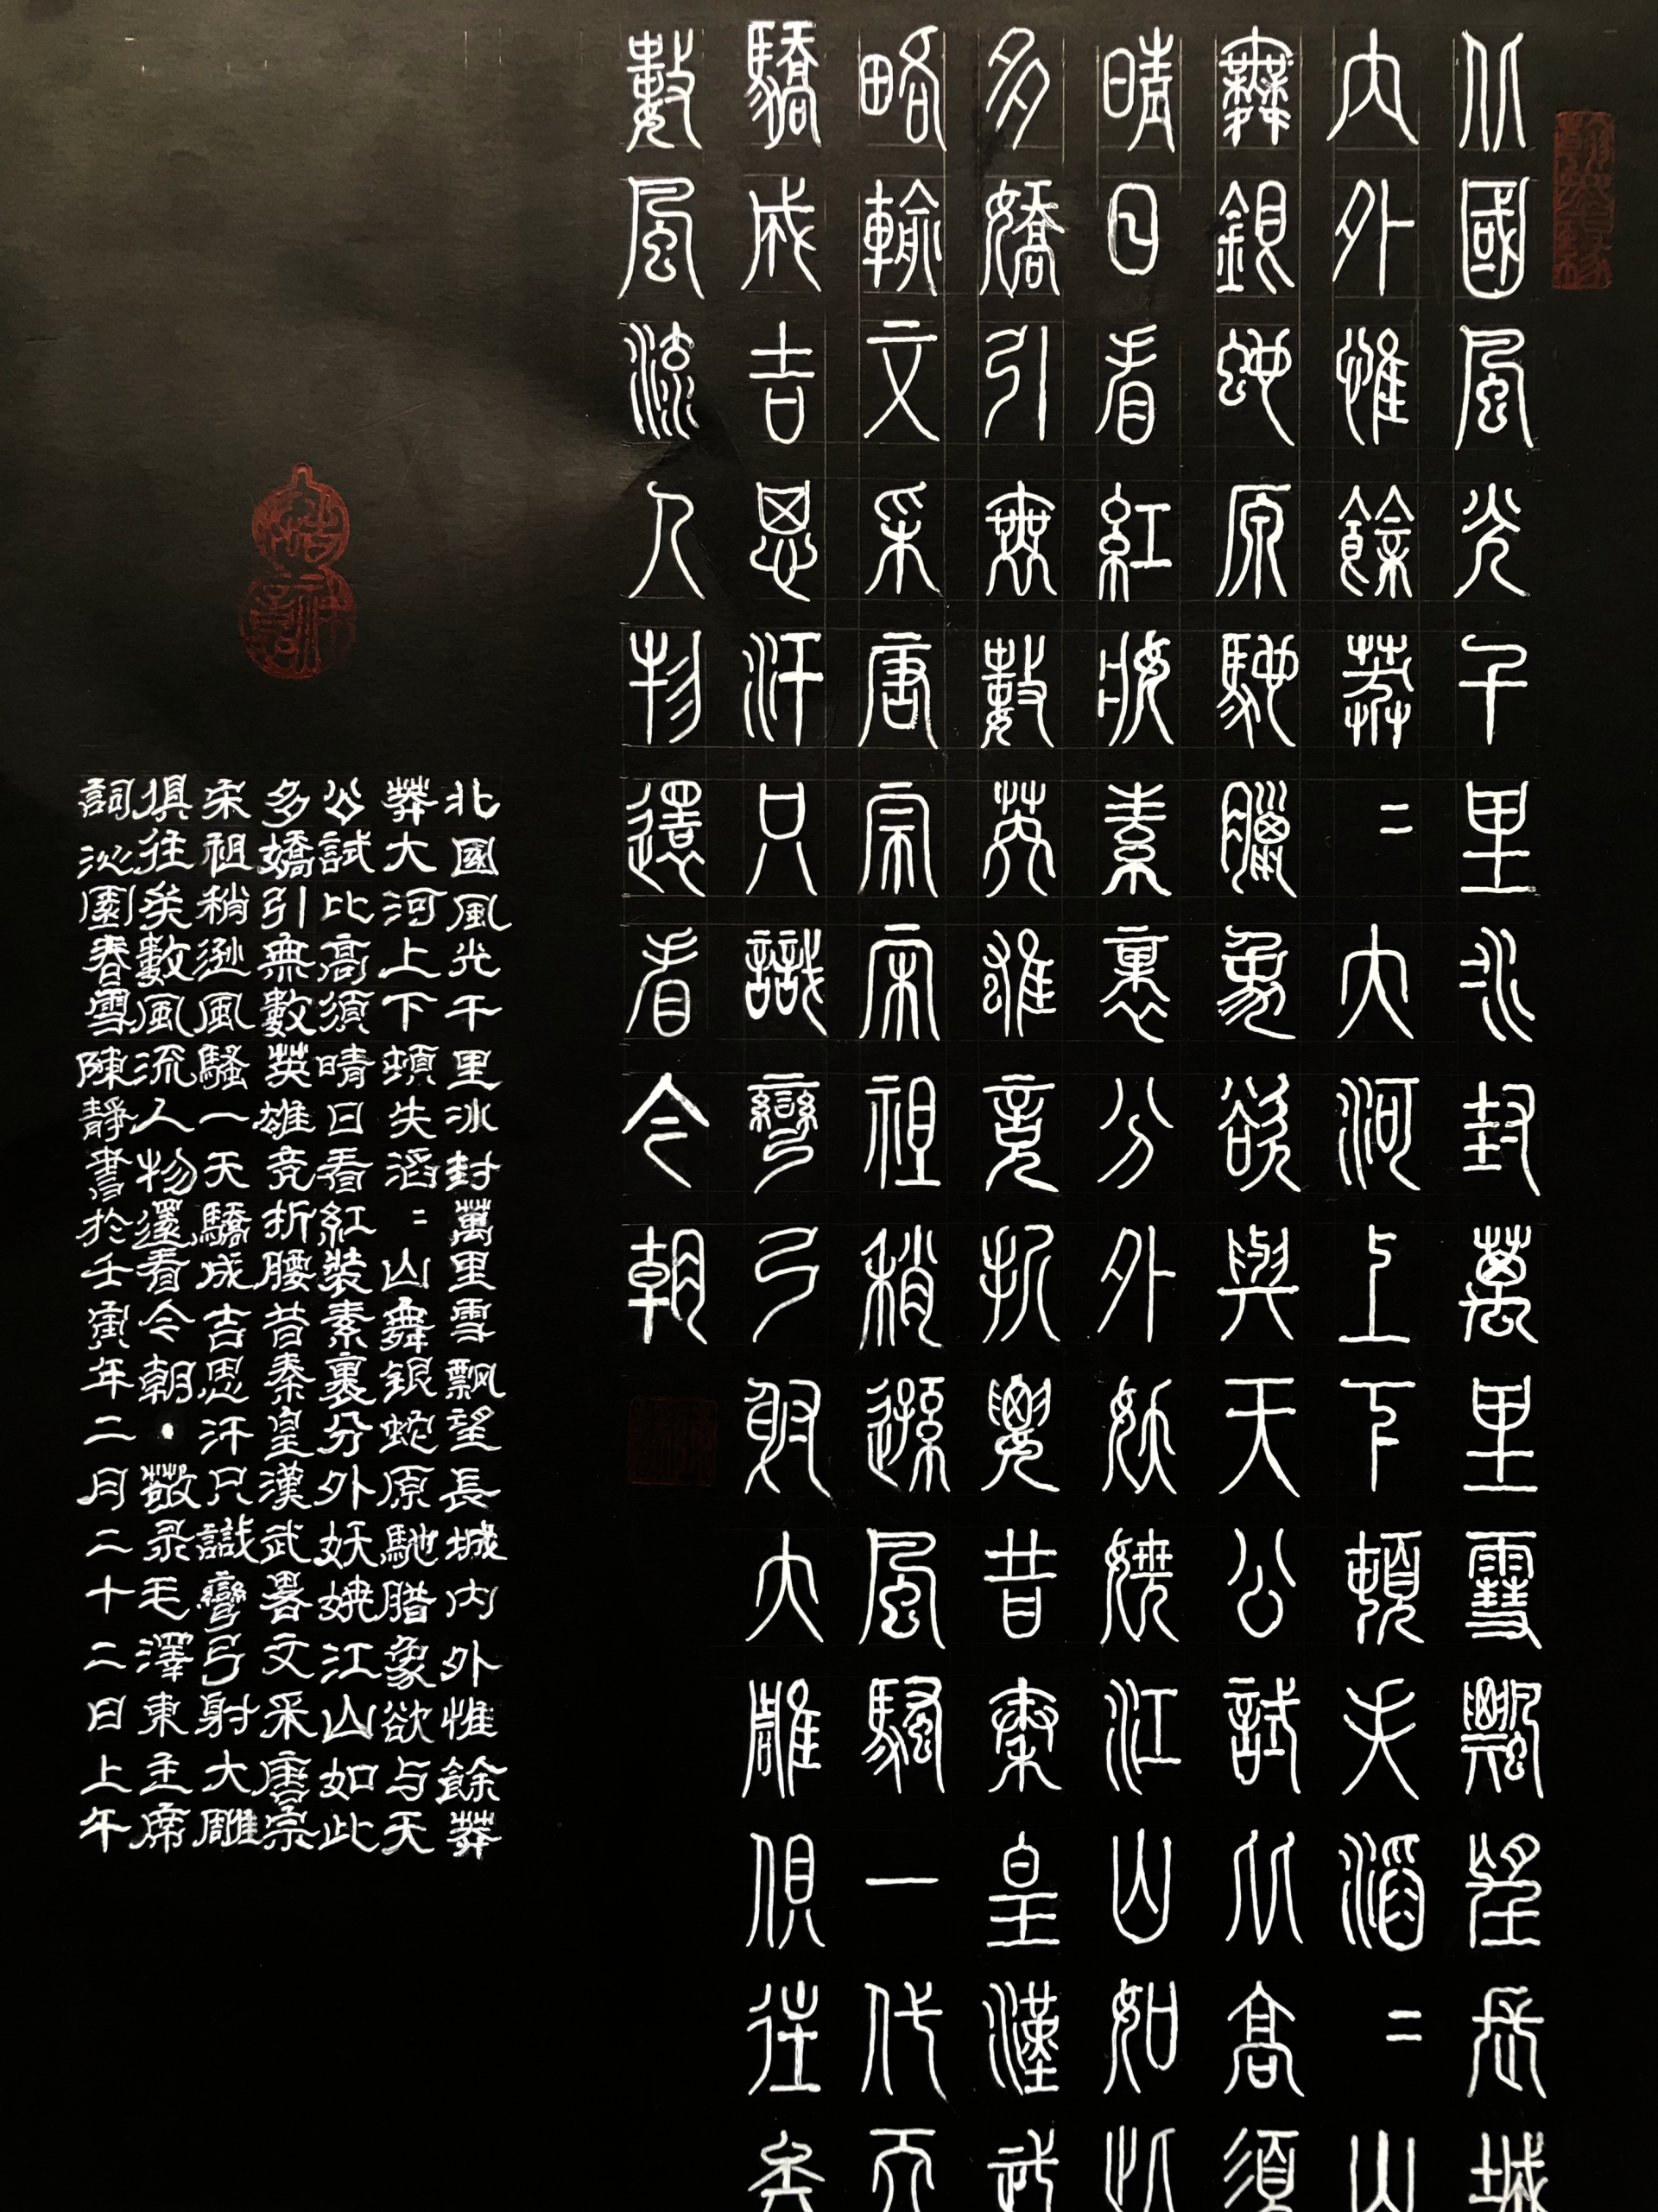 北國風光千里冰封萬里雪飄望長城
內外惟餘莽〻大河上下頓失滔〻山
舞銀蛇原馳臘象欲與天公試比高須
晴日看紅妝素裹分外妖嬈江山如此
多嬌引無數英雄竟折腰昔秦皇漢武
略輸文采唐宗宋祖稍遜風騷一代天
驕成吉思汗只識彎弓射大雕俱往矣
數風流人物還看今朝
北國風光千里冰封萬里雪飄望長城內外惟餘莽
莽大河上下頓失滔〻山舞銀蛇原馳腊象欲与天
公試比高須晴日看紅裝素裹分外妖嬈江山如此
多嬌引無數英雄竞折腰昔秦皇漢武畧文采唐宗
宋祖稍遜風騷一天驕成吉思汗只識彎弓射大雕
俱往矣數風流人物還看今朝•敬录毛澤東主席
詞沁園春雪陳靜書於壬寅年二月二十二日上午